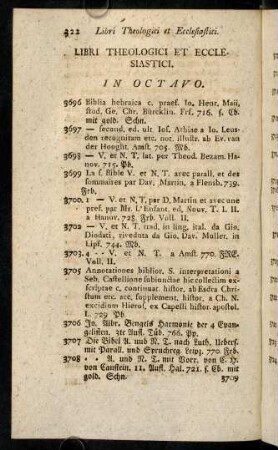 322 Libri Theologici et Ecclesiastici.
LIBRI THEOLOGICI ET ECCLE-
SIASTICI,
IN OCTAVO.
3696 Biblia hebraica c. praef. Io. Henr. Maii,
stud. Ge. Chr. Bürcklin. Frf. 716. s. Cb.
mit gold. Schn.
3697 — secund. ed. ult. Ios. Athiae a Io. Leus-
den recognitam erc. not. illustr. ab Ev. van
der Hooght. Amst. 705. Mb.
3698 — V. et N. T. lat. per Theod. Bezam. Ha-
nov. 715. Pb.
3699 La s. Bible V. et N. T. avec parall. et des
sommaires par Dav. Martin, a Flensb. 739.
Frb.
3700. 1 — V. et N. T. par D. Martin et avec une
pref. par Mr. L'Enfant. ed. Nouv. T. I. II.
a Hanov. 728. Frb. Voll. II.
3702 — V. et N. T. trad. in ling. ital. da Gio.
Diodati, riveduta da Gio. Dav. Muller. in
Lipf. 744. Mb.
3703. 4 — V. et N. T. a Amst. 770. FRE.
Voll. II.
3705 Annotationes biblior. S. interpretationi a
Seb. Castellione subiunctae hic collectim ex-
scriptae c. continuat. histor. ab Esdra Chri-
stum erc. acc. supplement. histor. a Ch. N.
excidium Hierof. ex Capelli histor. apostol.
L. 729 Pb
3706 Jo. Albr. Bengels Harmonie der 4 Evan-
gelisten. 3te Aufl. Tüb. 766. Pp.
3707 Die Bibel A. und N. T. nach Luth. Uebers.
mit Parall. und Spruchreg. Leipz. 770. Frb.
3708 — A. und N. T. mit Vorr. von C. H.
von Canstein. 11. Aufl. Hal. 721. s. Cb. mit
gold. Schn.
3709